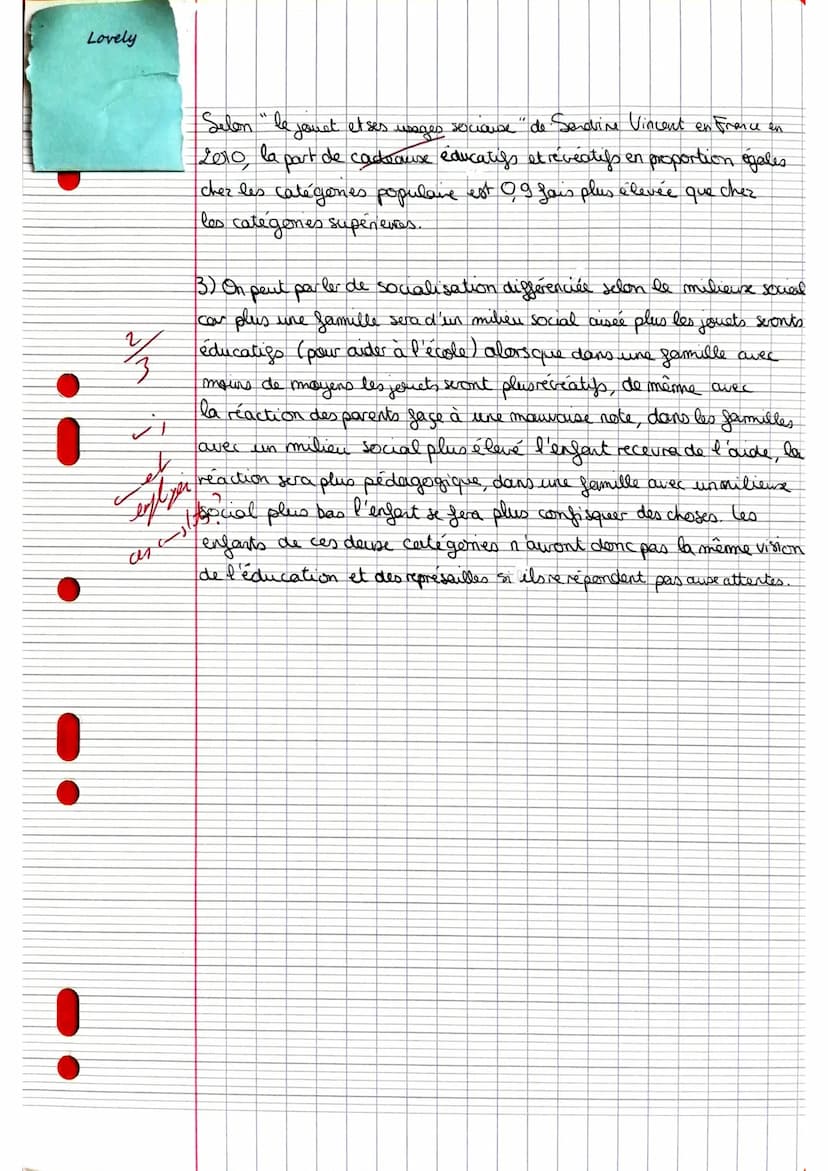 Lovely
Selon "le jouet et ses usages sociaux" de Sandrine Vincent en France en
2010, la part de cadeaux éducatifs et récréatifs en proportion égales
chez les catégories populaire est 0,9 fois plus élevée que chez
les catégories supérieures.
3) On peut parler de socialisation différenciée selon le milieux social
car plus une famille sera d'un milieu social aisée plus les jouets seronts
éducatifs (pour aider à l'école) alors que dans une famille avec
moins de moyens les jouets seront plus récréatifs, de même avec
la réaction des parents façe à une mauvaise note, dans les familles
avec un milieu social plus élevé l'enfant recevra de l'aide, la
réaction sera plus pédagogique, dans une famille avec un milieux
social plus bas l'enfant se fera plus confisquer des choses. Les
enfants de ces deux catégories n'auront donc pas la même vision
de l'éducation et des représailles si ils ne répondent pas aux attentes.
2/3
et